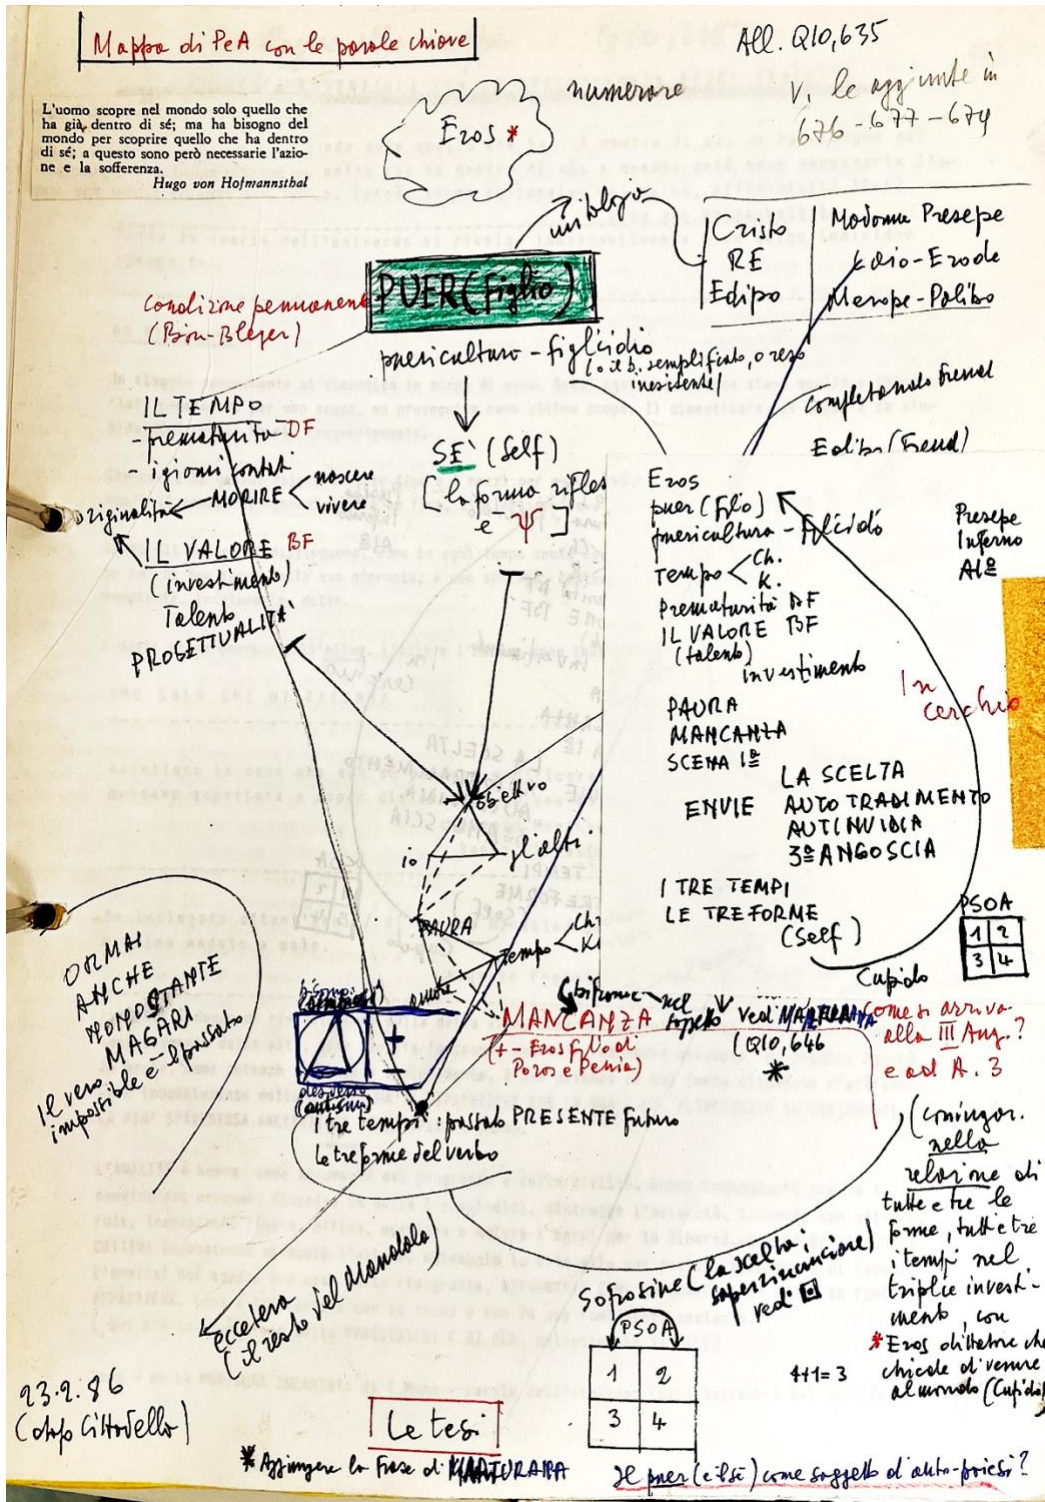 Mappa di PeA con le parole chiave
All. Q10,635
V. le aggiunte in
676-677-679
numerare
L'uomo scopre nel mondo solo quello che
ha già dentro di sé; ma ha bisogno del
mondo per scoprire quello che ha dentro
di sé; a questo sono però necessarie l'azio-
ne e la sofferenza.
Hugo von Hofmannsthal
Eros *
mitologia
Cristo
RE
Edipo
Madonna Presepe
Laio-Erode
Merope-Polibo
PUER (figlio)
Condizione permanente
(Bion-Bleger)
puericultura - figlicidio
semplificato, o reso
inesistente)
completando Freud
(Freud)
IL TEMPO
- prematurità DF
- i giorni contati
MORIRE
nascere
vivere
originalità
IL VALORE BF
(investimento)
Talento
PROGETTUALITÀ
SE' (Self)
[la forma rifles
è ψ ]
Eros
puer (figlio)
puericultura - figlicidio
Tempo
Ch.
K.
Prematurità DF
IL VALORE BF
(talento)
investimento
PAURA
MANCANZA
SCENA 1ª
LA SCELTA
ENVIE AUTO TRADIMENTO
AUTINVIDIA
3ª ANGOSCIA
I TRE TEMPI
LE TRE FORME
(Self)
Presepe
Inferno
In
cerchio
PSOA
1 2
3 4
Cupido
obiettivo
io
gli altri
PAURA
Tempo
Ch.
K.
ORMAI
ANCHE
NONOSTANTE
MAGARI
Il vero
impossibile è il passato
+
-
desiderio
(autismo)
MANCANZA
(+ - Eros figlio di
Poros e Penia)
bifronte
nel
vedi
(Q10,646
*
Come si arriva
alla III Ang.?
e ad A. 3
I tre tempi: passato PRESENTE futuro
Le tre forme del verbo
nella
relazione di
tutte e tre le
forme, tutte e tre
i tempi nel
triplice investi-
mento, con
* Eros che
chiede di venire
al mondo (Cupido)
eccetera
(il resto del Mandala)
Sofrosine (la scelta;
vedi
PSOA
1 2
3 4
4+1=3
23.2.86
(dopo Cittadella)
Le tesi
* Aggiungere la frase di MATURANA
Il puer (e il sé) come soggetto d'auto-poiesi?